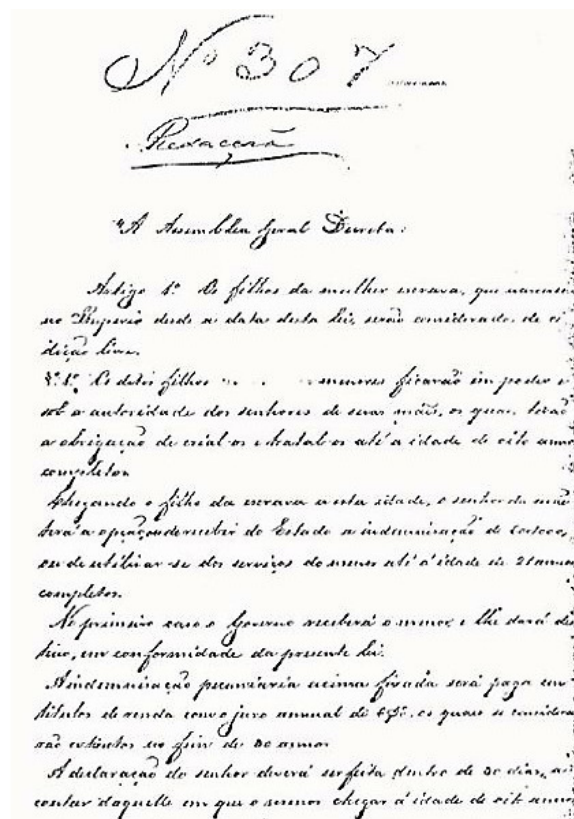 Nº 307
Redacção
"A Assemblea Geral Decreta:
Artigo 1º Os filhos da mulher escrava, que nascerem
no Imperio desde a data desta lei, serão considerados de co
dição livre.
§ 1º Os ditos filhos menores ficarão em poder e
sob a autoridade dos senhores de suas mãis, os quaes terão
a obrigação de crial-os e tratal-os até a idade de oito annos
completos.
Chegando o filho da escrava a esta idade, o senhor da mãi
terá a opção ou de receber do Estado a indemnisação de
ou de utilisar-se dos serviços do menor até á idade de 21 annos
completos.
No primeiro caso o Governo receberá o menor, e lhe dará des
tino, em conformidade da presente lei.
A indemnisação pecuniaria acima fixada será paga em
titulos de renda com o juro annual de 6%, os quaes se considera
rão extinctos no fim de 30 annos
A declaração do senhor deverá ser feita dentro de 30 dias, a
contar daquelle em que o menor chegar á idade de oito annos